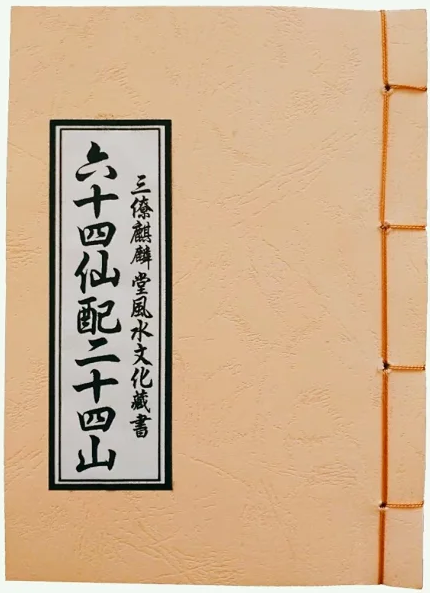 三僚麒麟堂風水文化藏書
六十四仙配二十四山